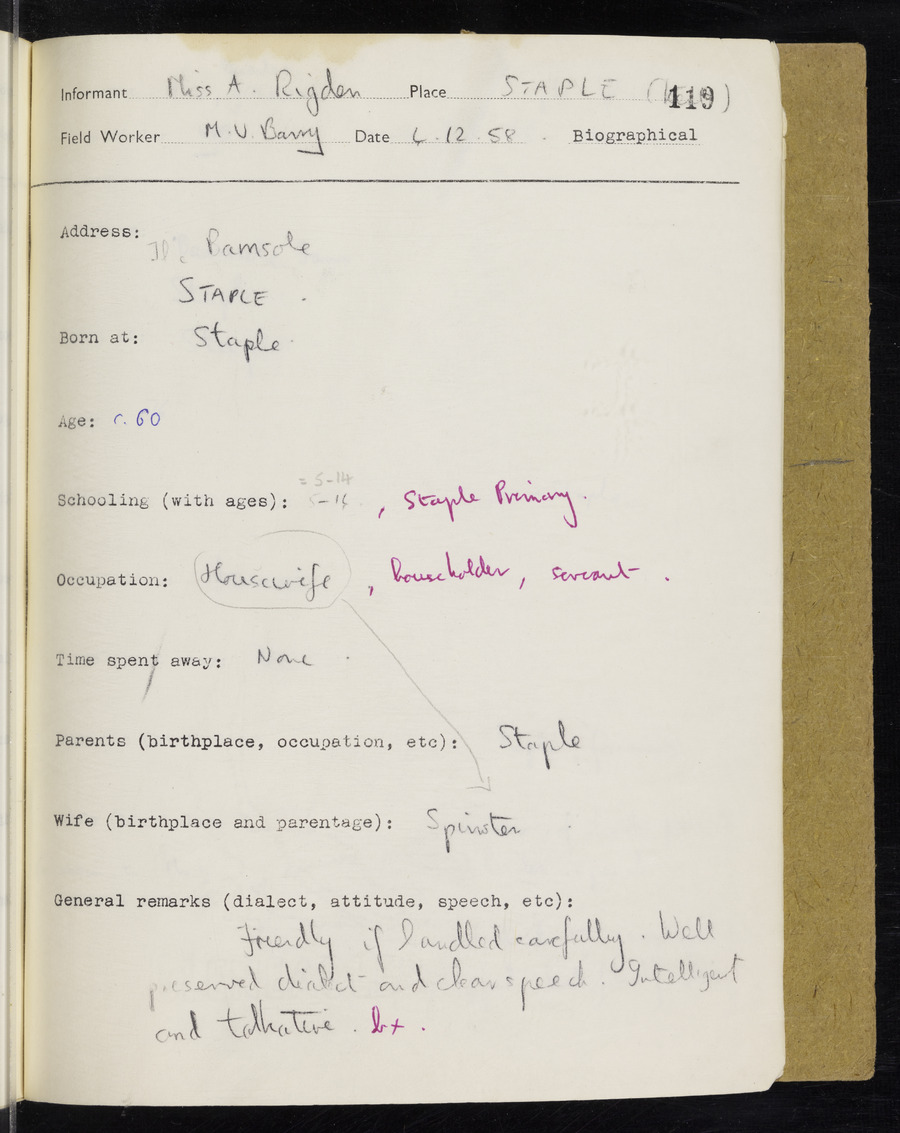 Informant Miss A. Rigden Place STAPLE 119
Field Worker M. V. Barry Date 6.12.58. Biographical
Address:
Barnsole
STAPLE.
Born at: Staple.
Age: c. 60
= 5-14
Schooling (with ages): , Staple Primary.
Occupation: Housewife, householder, servant.
Time spent away: None.
Parents (birthplace, occupation, etc): Staple
Wife (birthplace and parentage): Spinster.
General remarks (dialect, attitude, speech, etc):
Friendly if handled carefully. Well
preserved dialect and clear speech. Intelligent
and talkative.